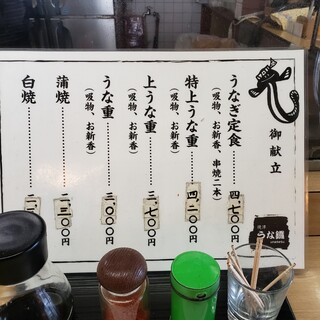 御献立
うなぎ定食………四、七〇〇円
（吸物、お新香、串焼二本）
特上うな重………四、二〇〇円
（吸物、お新香）
上うな重………三、七〇〇円
（吸物、お新香）
うな重………三、〇〇〇円
（吸物、お新香）
蒲焼………二、三〇〇円
白焼………二、
うな鐵